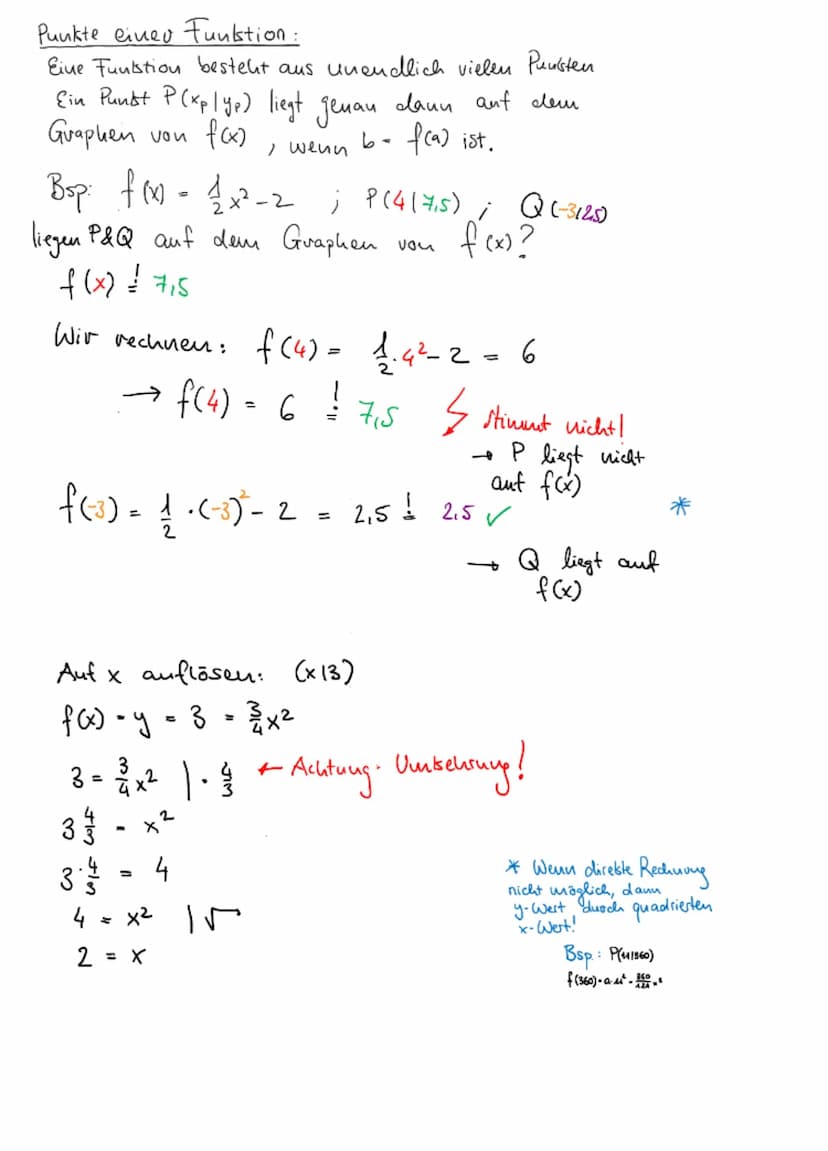 Punkte einer Funktion:
Eine Funktion besteht aus unendlich vielen Punkten
Ein Punkt P(xₚ|yₚ) liegt genau dann auf dem
Graphen von f(x), wenn b = f(a) ist.
Bsp: f(x) = 1/2 x² - 2 ; P(4|7,5) ; Q(-3|2.5)
liegen P&Q auf dem Graphen von f(x)?
f(x) =! 7,5
Wir rechnen: f(4) = 1/2 · 4² - 2 = 6
→ f(4) = 6 =! 7,5 stimmt nicht!
→ P liegt nicht
auf f(x)
f(-3) = 1/2 · (-3)² - 2 = 2,5 =! 2.5 ✓ *
→ Q liegt auf
f(x)
Auf x auflösen: (x|3)
f(x) = y = 3 = 3/4 x²
3 = 3/4 x² | · 4/3 ← Achtung · Umkehrung!
3 4/3 = x²
3 · 4/3 = 4
4 = x² | √
2 = x
* Wenn direkte Rechnung
nicht möglich, dann
y-Wert durch quadrierten
x-Wert!
Bsp.: P(11|360)
f(360) = a · 11² =